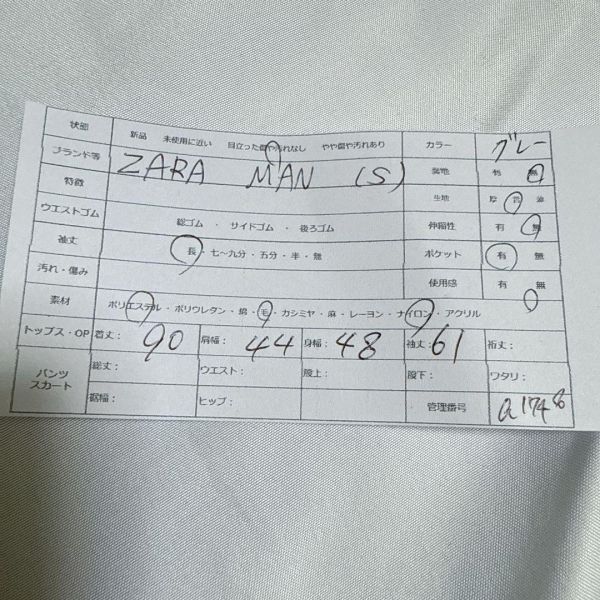 状態 新品 未使用に近い 目立った傷や汚れなし やや傷や汚れあり カラー グレー
ブランド等 ZARA MAN (S) 裏地 有 無
特徴 生地 厚 普 薄
ウエストゴム 総ゴム ・ サイドゴム ・ 後ろゴム 伸縮性 有 無
袖丈 長・七〜九分・五分・半・無 ポケット 有 無
汚れ・傷み 使用感 有 無
素材 ポリエステル・ポリウレタン・綿・毛・カシミヤ・麻・レーヨン・ナイロン・アクリル
トップス・OP 着丈: 90 肩幅: 44 身幅: 48 袖丈: 61 裄丈:
パンツ スカート 総丈: ウエスト: 股上: 股下: ワタリ:
裾幅: ヒップ: 管理番号 a1748